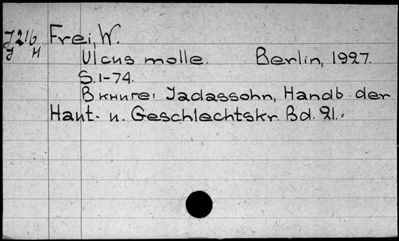 J 216 Frei, W.
J H
Ulcus molle. Berlin, 1927.
S. 1-74.
В книге: Jadassohn, Handb. der
Haut- u. Geschlechtskr. Bd. 21.